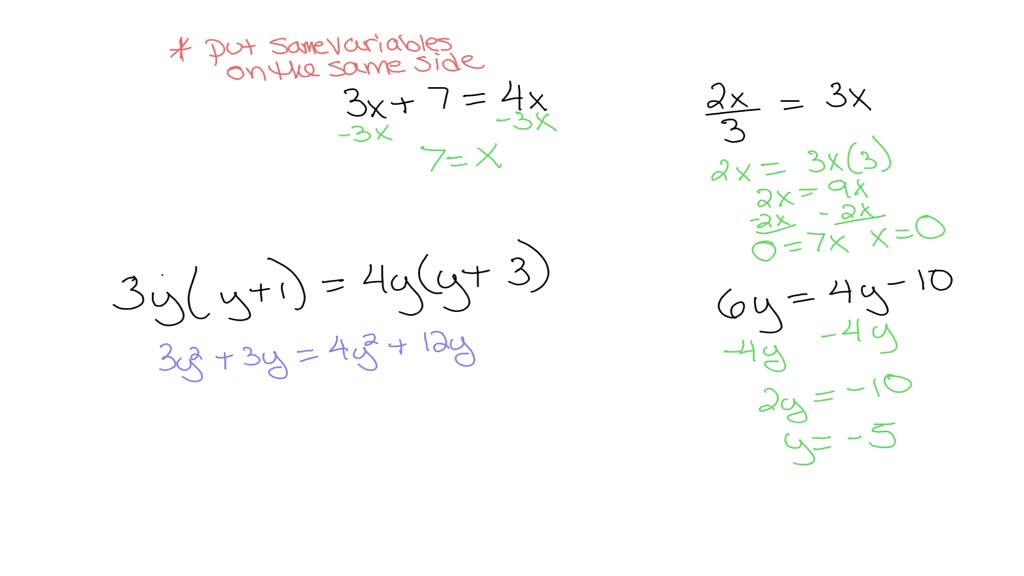 * put same variables
on the same side
3x + 7 = 4x
-3x -3x
7 = x
3y(y+1) = 4y(y+3)
3y² + 3y = 4y² + 12y
2x/3 = 3x
2x = 3x(3)
2x = 9x
-2x -2x
0 = 7x x = 0
6y = 4y - 10
-4y -4y
2y = -10
y = -5